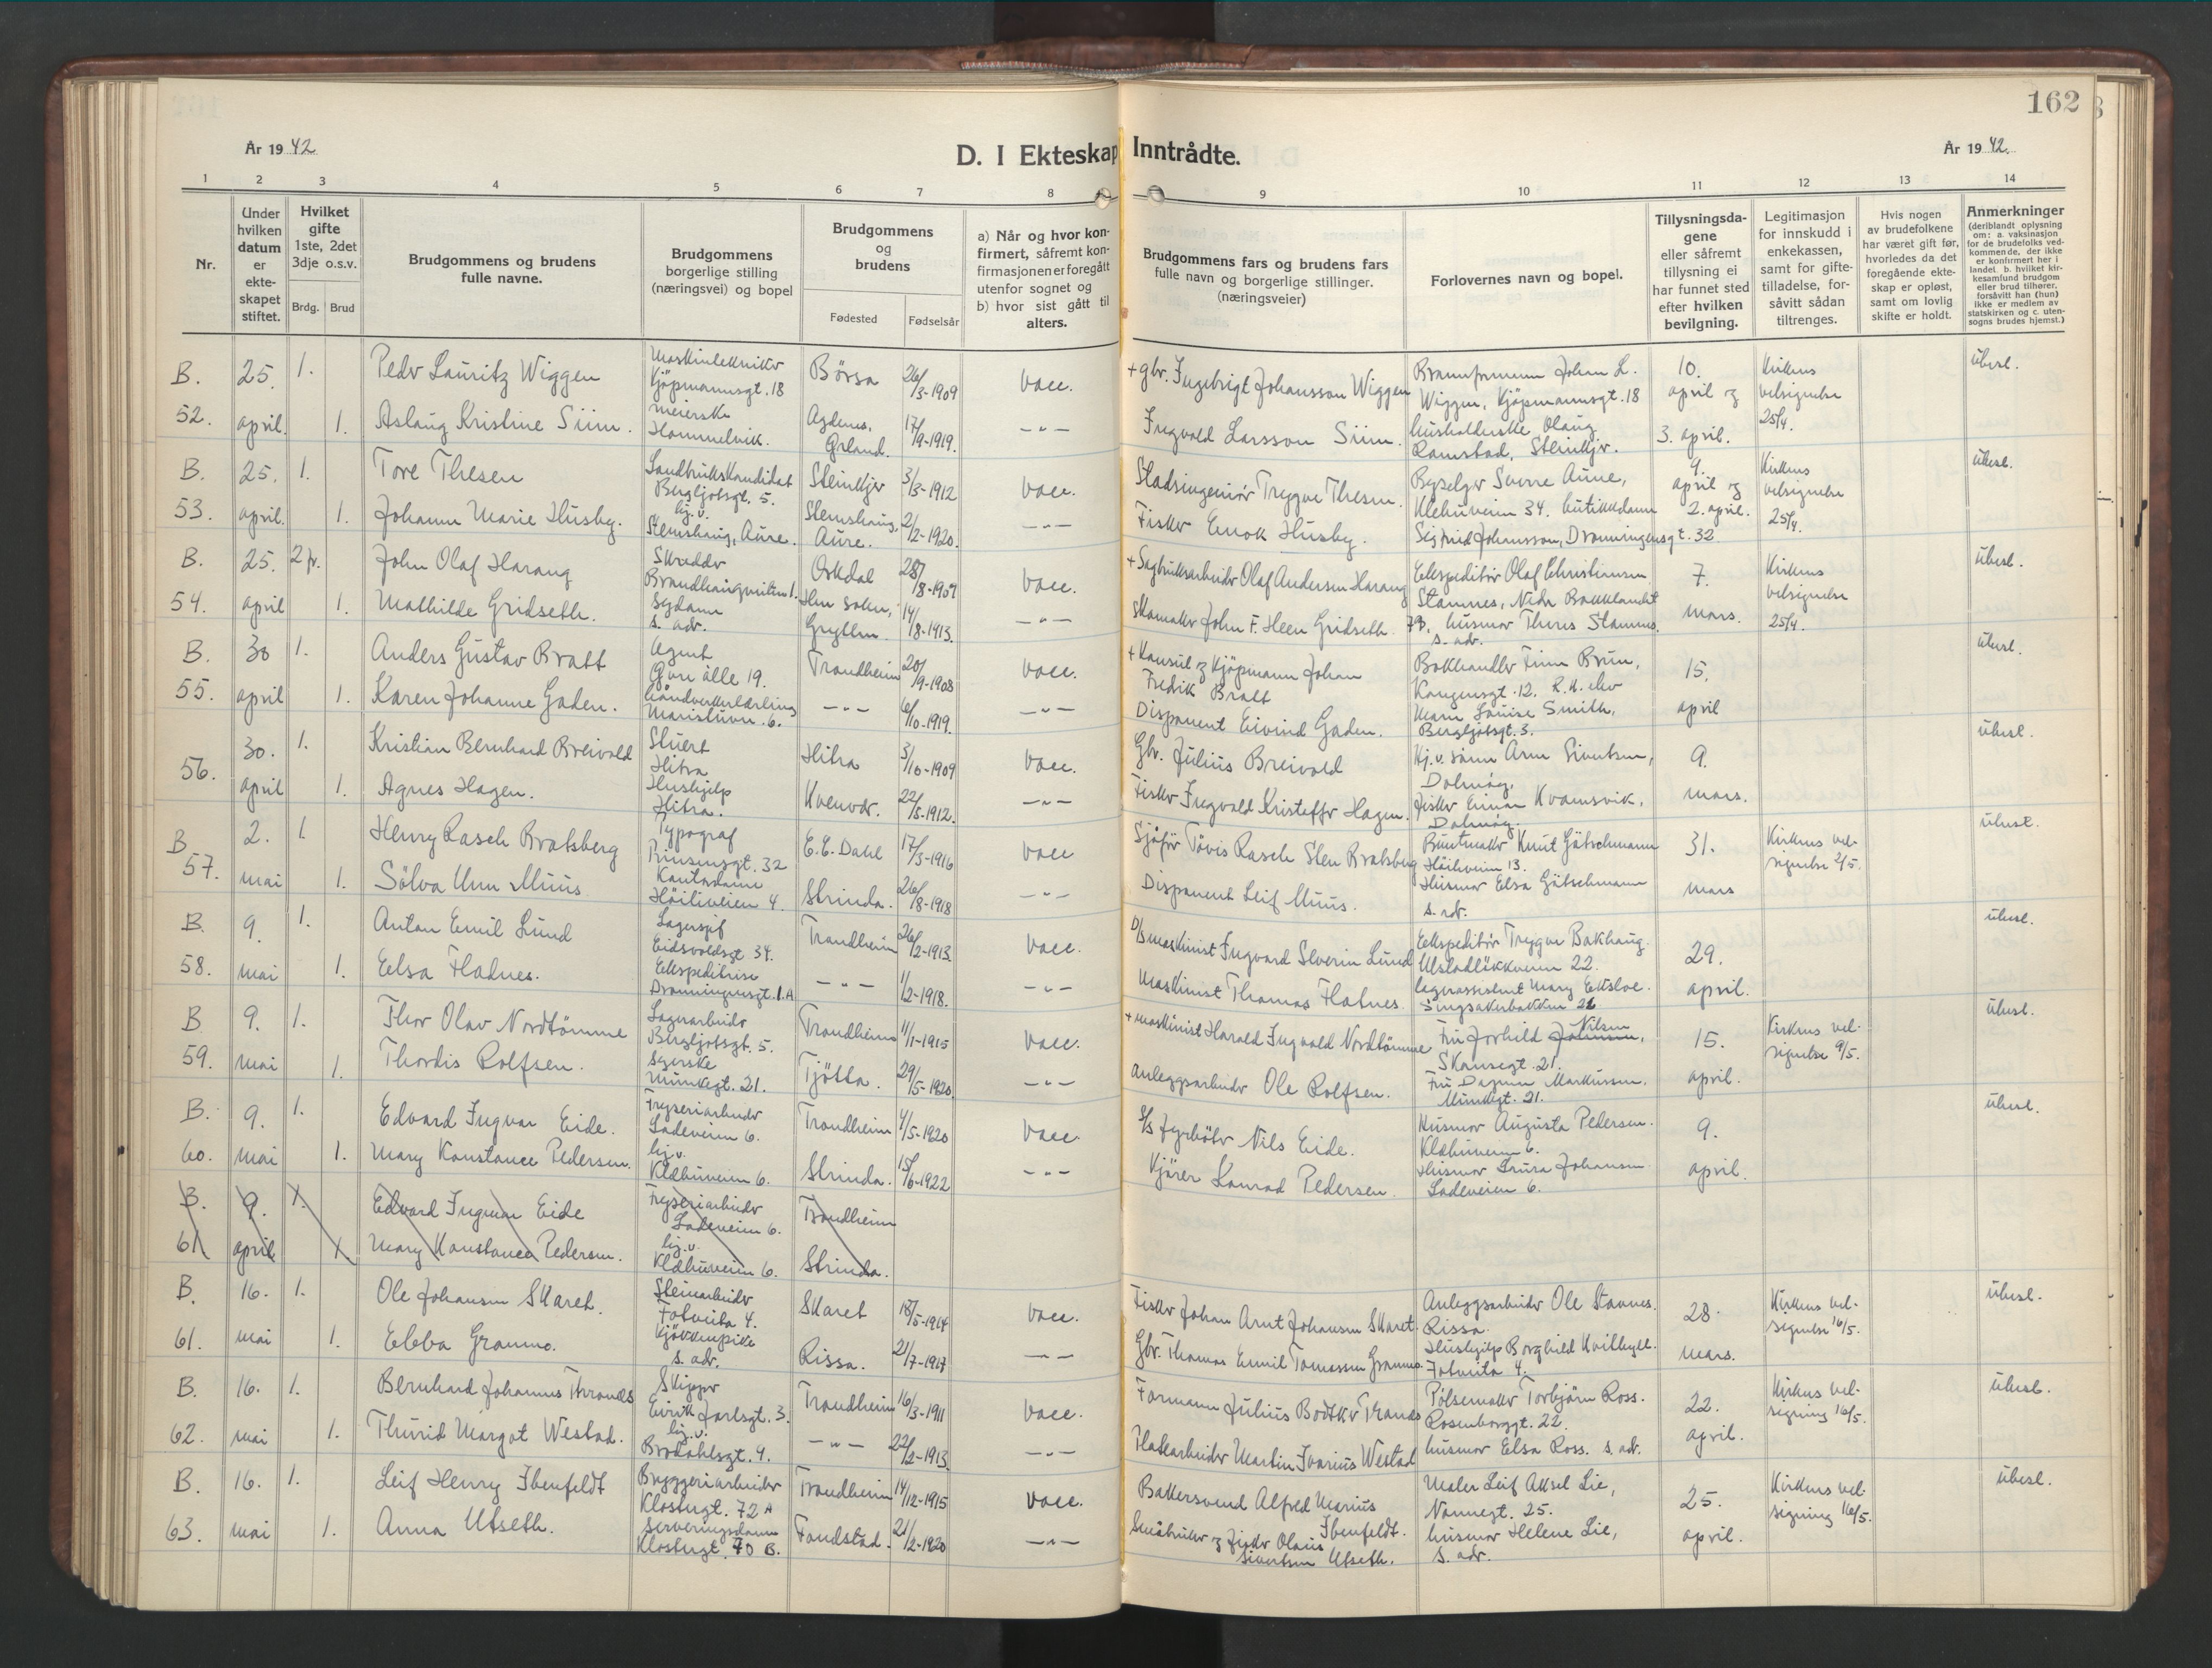 162
År 1942.
D. I Ekteskap Inntrådte.
År 1942.
1 2 3 4 5 6 7 8 9 10 11 12 13 14
Nr.
Under hvilken datum er ekteskapet stiftet.
Hvilket gifte 1ste, 2det 3dje o.s.v.
Brdg. Brud
Brudgommens og brudens fulle navne.
Brudgommens borgerlige stilling (næringsvei) og bopel
Brudgommens og brudens
Fødested Fødselsår
a) Når og hvor konfirmert, såfremt konfirmasjonen er foregått utenfor sognet og b) hvor sist gått til alters.
Brudgommens fars og brudens fars fulle navn og borgerlige stillinger. (næringsveier)
Forlovernes navn og bopel.
Tillysningsdagene eller såfremt tillysning ei har funnet sted efter hvilken bevilgning.
Legitimasjon for innskudd i enkekassen, samt for giftetilladelse, forsåvitt sådan tiltrenges.
Hvis nogen av brudefolkene har været gift før, hvorledes da det foregående ekteskap er opløst, samt om lovlig skifte er holdt.
Anmerkninger (deriblandt oplysning om: a. vaksinasjon for de brudefolks vedkommende, der ikke er konfirmert her i landet. b. hvilket kirkesamfund brudgom eller brud tilhører, forsåvitt han (hun) ikke er medlem av statskirken og c. utensogns brudes hjemst.)
B. 25. 1. Peder Lauritz Wiggen Maskintekniker Kjøpmannsgt. 18 Börsa 26/3-1909 vacc. + gbr. Ingebrigt Johansson Wiggen Johan L. Wiggen, Kjøpmannsgt. 18 10. april og Kirkens velsignelse 25/4. ubesl.
52. april. 1. Aslaug Kristine Siim. Meierske Hommelvik. Agdenes, Ørland. 17/9-1919. -"- Ingvald Larsson Siim. husholderske Olaug Ramstad, Steinkjer. 3. april.
B. 25. 1. Tore Thesen Landbrukskandidat Bergljotsgt. 5. Steinkjer 3/3-1912 vacc. Stadsingeniör Trygve Thesen. Byselger Sverre Aune, Klæbuveien 34. 9. april og Kirkens velsignelse 25/4. ubesl.
53. april. 1. Johanne Marie Husby. lig. v. Stemshaug, Aure. Stemshaug, Aure. 2/2-1920. -"- Fisker Enok Husby. butikkdame Sigfrid Johansson, Dronningensgt. 32 2. april.
B. 25. 2 fr. John Olaf Harang Skredder Orkdal 28/8-1909 vacc. + Sagbruksarbeider Olaf Andersen Harang Ekspeditör Olaf Christiansen Stamnes, Nedr Bakklandet 7. Kirkens velsignelse 25/4. ubesl.
54. april 1. Mathilde Gridseth. Sydame s. adr. Hen sokn, Grytten. 14/8-1913. -"- Skomaker John F. Heen Gridseth. 79. husmor Theres Stamnes. s. adr. mars.
B. 30 1. Anders Gustav Bratt Agent Gyri alle 19. Trondheim 20/9-1908 vacc. + Konsul og kjøpmann Johan Fredik Bratt Bokhandler Finn Brun, Kongensgt. 12. 15. ubesl.
55. april 1. Karen Johanne Gaden. Maristuvn. 6. -"- 6/10-1919. -"- Disponent Eivind Gaden. Louise Smith, Bergljotsgt. 3. april
30. 1. Kristian Bernhard Breivold Stuert Hitra Hitra 3/10-1909 vacc. Gbr. Julius Breivold Arne Sivertsen, Dolmöy. 9. ubesl.
56. april 1. Agnes Hagen. Hushjelp Hitra. Kvenvær. 22/5-1912. -"- Fisker Ingvald Kristoffer Hagen. Fisker Einar Kvamsvik, Dolmöy. mars.
B 2. 1. Henry Rasch Bratsberg Typograf Prinsensgt. 32 E.C. Dahl 17/3-1916 vacc Sjåför Tövis Rasch Sten Bratsberg Buntmaker Knut Götschmann Höiliveien 13. 31. Kirkens velsignelse 2/5. ubesl.
57. mai 1. Sölva Unn Muus Kontordame Höiliveien 4. Strinda. 26/8-1918 -"- Disponent Leif Muus. Husmor Elsa Götschmann s. adr. mars
B. 9. 1. Anton Emil Lund Lagersjef Eidsvoldsgt 34. Trondheim 26/2-1913. vacc. D/S maskinist Ingvard Severin Lund Ekspeditör Trygve Bakhaug. Ulstadløkkveien 22. 29. ubesl.
58. mai 1. Elsa Flatnes. Ekspeditrise Dronningensgt. 1.A -"- 1/2-1918. -"- Maskinist Thomas Flatnes. lagerassistent Mary Eksloe. Singsakerbakken 26 april.
B 9. 1. Thor Olav Nordtömme Lagerarbeider Bergljotsgt. 5. Trondheim 11/1-1915 vacc. + Maskinist Harald Ingvald Nordtömme Fru Jorhild Nilsen, Skansegt. 21. 15. Kirkens velsignelse 9/5. ubesl.
59. mai 1. Thordis Rolfsen. Syerske Munkegt. 21. Tjötta. 29/5-1920. -"- Anleggsarbeider Ole Rolfsen. Fru Dagmar Markussen. Munkegt. 21. april.
B. 9. 1. Edvard Ingvar Eide. Fryseriarbeider Ladeveien 6. Trondheim 4/5-1920 vacc. S/S fyrböter Nils Eide. Husmor Augusta Pedersen. Klæbuveien 6. 9. ubesl.
60. mai 1. Mary Konstance Pedersen. lig. v. Klæbuveien 6. Strinda. 15/6-1922 -"- Kjörer Konrad Pedersen. Husmor Laura Johansen Ladeveien 6. april.
B. 9. 1. Edvard Ingvar Eide Fryseriarbeider Ladeveien 6. Trondheim
61 april 1 Mary Konstance Pedersen. lig. v. Klæbuveien 6. Strinda.
B. 16. 1. Ole Johansen Skaret. Steinarbeider Fotveita 4. Skaret 18/5-1914 vacc. Fisker Johan Arnt Johansen Skaret. Anleggsarbeider Ole Stavnes. Rissa. 28. Kirkens velsignelse 16/5. ubesl.
61. mai 1. Ebba Granmo. Kjökkenpike s. adr. Rissa. 21/7-1917 -"- Gbr. Thomas Emil Tomassen Granmo. Hushjelp Borghild Kvithyll. Fotveita 4. mars.
B. 16. 1. Bernhard Johannes Tranaas Skipper Eirik Jarlsgt. 3. Trondheim 16/3-1911 vacc. Formann Julius Bodtker Tranaas Pölsemaker Torbjörn Ross. Rosenborggt. 22. 22. Kirkens velsigning 16/5. ubesl.
62. mai 1. Thurid Margot Westad. lig. v. Brodahlsgt. 4. -"- 22/2-1913. -"- Platearbeider Martin Ivarius Westad husmor Elsa Ross. s. adr. april.
B. 16. 1. Leif Henry Ibenfeldt Bryggeriarbeider Klostergt. 72 A Trondheim 14/12-1915 vacc. Bakersvend Alfred Marius Ibenfeldt. Maler Leif Aksel Lie, Nonnegt. 25. 25. Kirkens velsigning 16/5. ubesl.
63. mai 1. Anna Utseth. Serveringsdame Klostergt. 70 B. Fandstad. 21/2-1920 -"- Småbruker og fisker Olaus Sivertsen Utseth. husmor Helene Lie, s. adr. april.